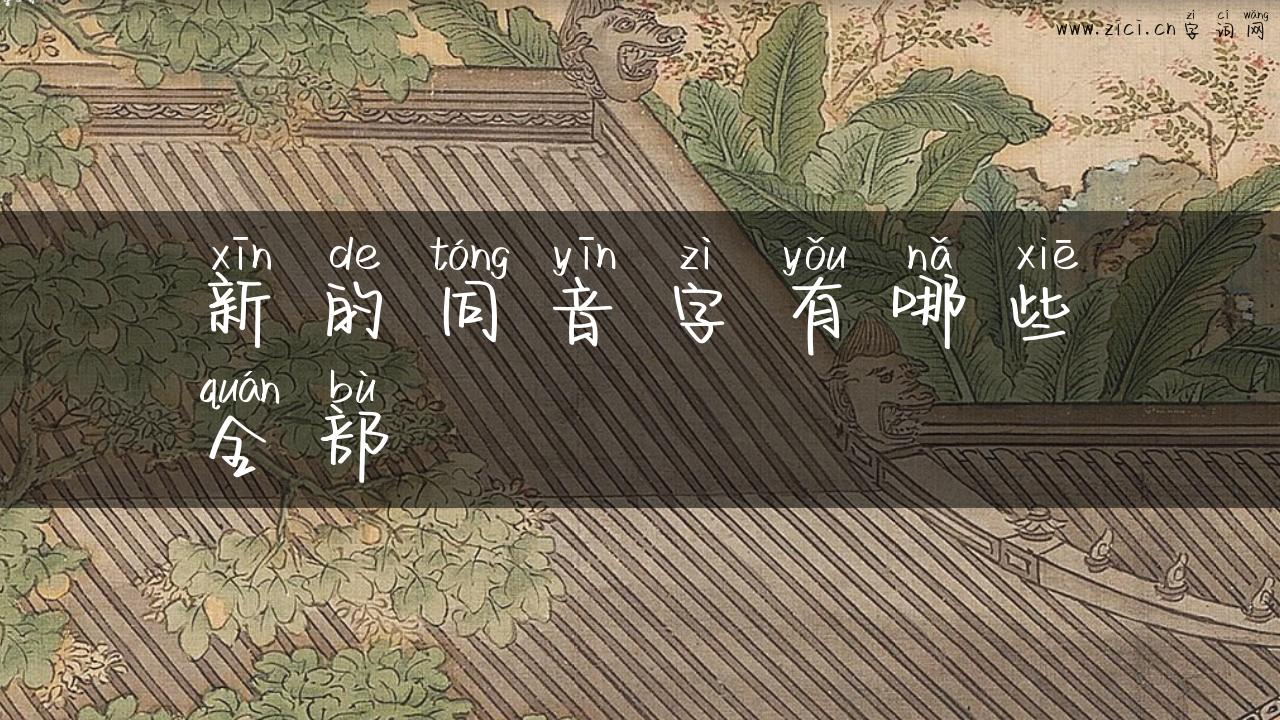 www.zici.cn 字词网
zì cí wǎng
xīn de tóng yīn zì yǒu nǎ xiē
新的同音字有哪些
quán bù
全部